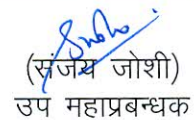 (संजय जोशी)
उप महाप्रबन्धक